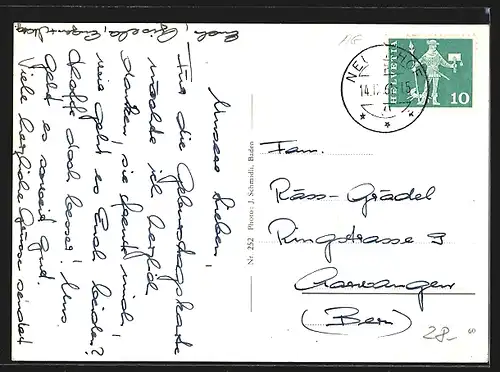 Unsere Lieben,
Für die Geburtstagskarte
möchte ich herzlich
danken, sie freut mich!
wie geht es Euch beiden?
Hofft doch besser! Uns
geht es soweit gut.
Viele herzliche Grüsse sendet
Euch, Gisela,
Nr. 252 Photo: J. Schmidli, Baden
HELVETIA
10
Fam.
Räss-Grädel
Ringstrasse 3
Aarwangen
(Bern)
28.-